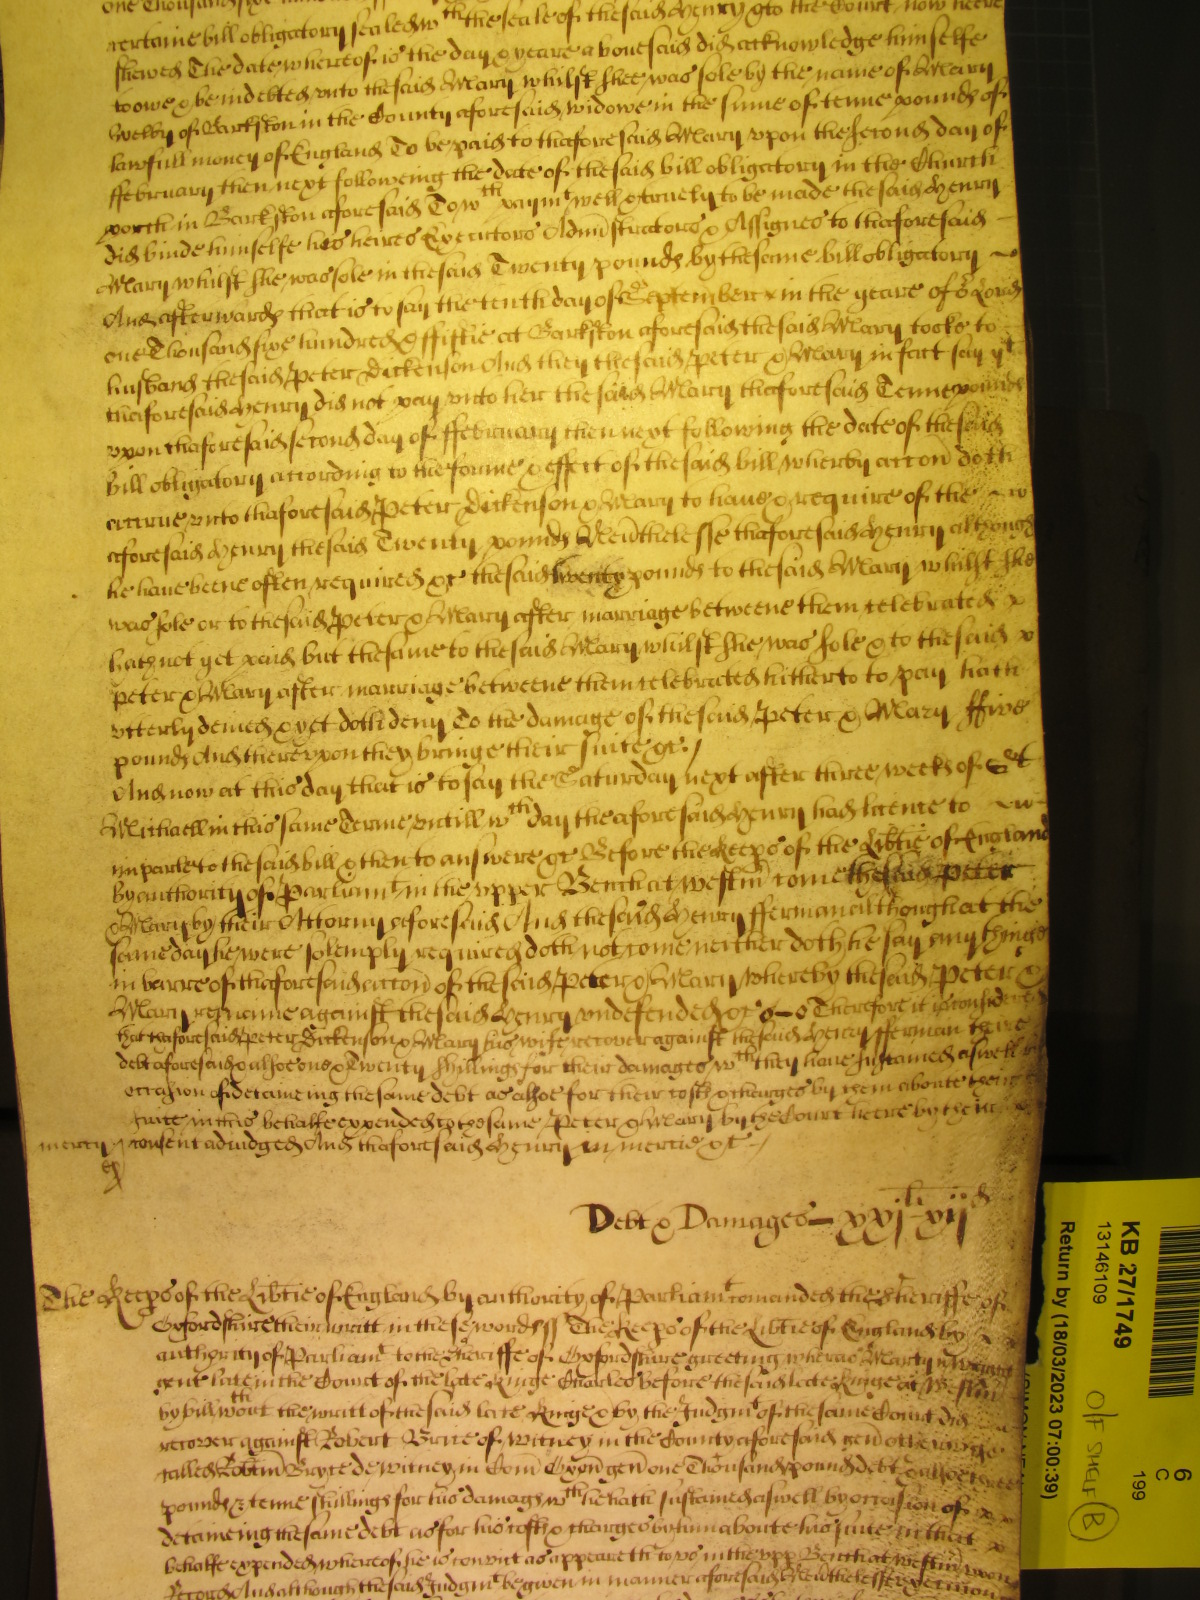 one Thousand six hundred
certaine bill obligatory sealed wth the seale of the said Henry & to the Court now heere
shewed The date whereof is the day & yeare abouesaid did acknowledge himselfe
to owe & be indebted vnto the said Mary whilst shee was sole by the name of Mary
Welby of Barkston in the County aforesaid widowe in the sume of tenne pounds of
lawfull money of England To be paid to thaforesaid Mary vpon the second day of
ffebruary then next followeing the date of the said bill obligatory in the Church
porch in Barkston aforesaid To wch paymt well & truely to be made the said Henry
did binde himselfe his heires Executors Administrators & Assignes to thaforesaid
Mary whilst she was sole in the said Twenty pounds by the same bill obligatory
And afterwards that is to say the tenth day of September in the yeare of or Lord
one Thousand sixe hundred & ffiftie at Barkston aforesaid the said Mary tooke to
husband the said Peter Dickenson And they the said Peter & Mary in fact say yt
thaforesaid Henry did not pay vnto her the said Mary thaforesaid Tenne pounds
vpon thaforesaid second day of ffebruary then next following the date of the said
bill obligatory according to the forme & effect of the said bill wherby accon doth
accrue vnto thaforesaid Peter Dickenson & Mary to haue & require of the
aforesaid Henry the said Twenty pounds Neuthelesse thaforesaid Henry although
he haue beene often required &c the said twenty pounds to the said Mary whilst she
was sole or to the said Peter & Mary after marriage betweene them celebrated
hath not yet paid but the same to the said Mary whilst she was sole & to the said
Peter & Mary after marriage betweene them celebrated hitherto to pay hath
vtterly denied & yet doth deny To the damage of the said Peter & Mary ffive
pounds And therevpon they bringe their suite &c
And now at this day that is to say the Saturday next after three weeks of St
Michaell in this same Terme vntill wch day the aforesaid Henry had licence to
imparle to the said bill & then to answere &c Before the Keeps of the Libtie of England
by authority of Parliamt in the vpper Bench at Westm come the said Peter
& Mary by their Attorny aforesaid And the said Henry fferman although at the
same day he were solemply required doth not come neither doth he say any thinge
in barre of thaforesaid accon of the said Peter & Mary whereby the said Peter &
Mary remaine against the said Henry vndefended &c Therefore it is considered
that thaforesaid Peter Dickenson & Mary his wife recover against the said Henry fferman their
debt aforesaid & alsoe one & Twenty shillings for their damages wch they haue sustained aswell by
occasion of detaineing the same debt as alsoe for their costs & charges by them aboute their
suite in this behalfe expended to the same Peter & Mary by the Court heere by their
mercy consent adiudged And thaforesaid Henry in mercie &c
Debt & Damages xxjli xijd
The Keeps of the Libtie of England by authority of Parliamt comanded the Sheriffe of
Oxfordshire their writt in these words The Keeps of the Libtie of England by
authority of Parliamt to the Sheriffe of Oxfordshire greeting whereas Martyn
gent late in the Court of the late Kinge Charles before the said late Kinge at Westm
by bill wthout the writt of the said late Kinge & by the Judgmt of the same Court did
recover against Robert Brice of Witney in the County aforesaid gen otherwise
called Robtm Bryce de Witney in Com Oxon gen one Thousand pounds debt & alsoe
pounds & tenne shillings for his damags wch he hath sustained aswell by occasion of
detaineing the same debt as for his costs & charges by him aboute his suite in that
behalfe expended whereof he is convict as appeareth to vs in the vpp Bench at Westm vpon
Record And although the said Judgmt be given in manner aforesaid Neuthelesse execucon
KB 27/1749
13146109
Return by (18/03/2023 07:00:39)
OFF SHELF B
6
C
199